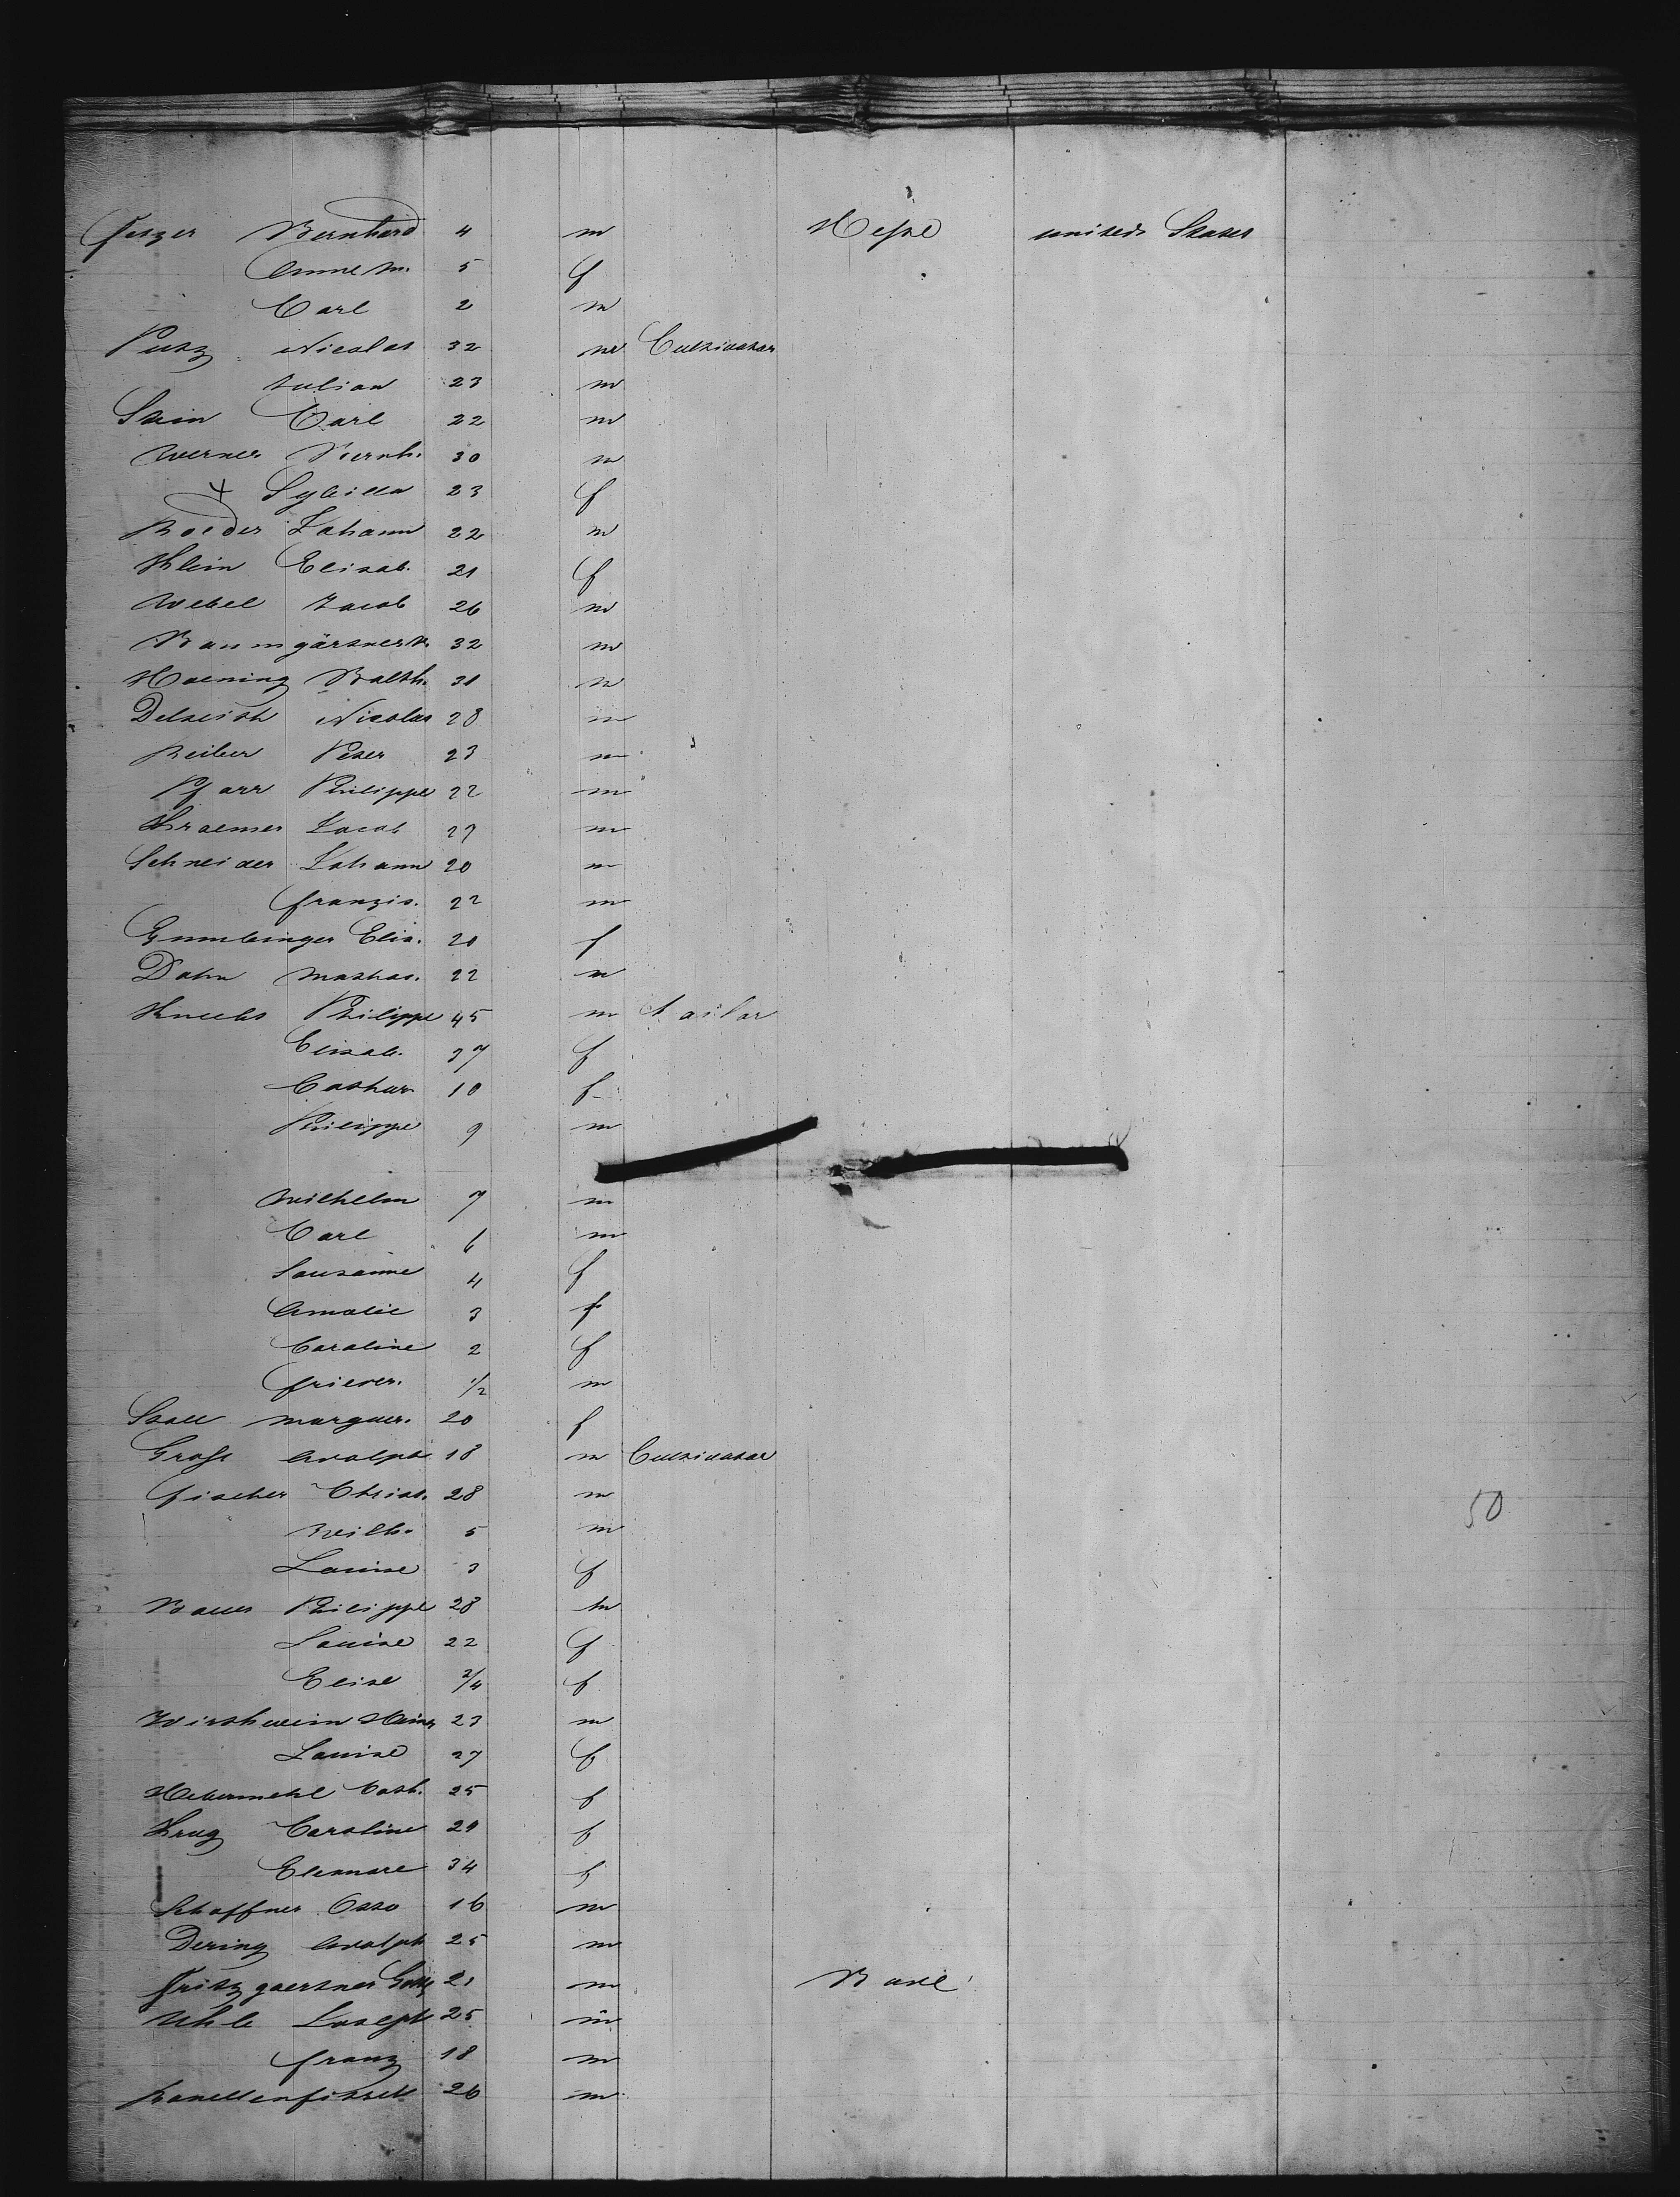 Fetzer Bernhard 4 m Hesse united States
Anne M. 5 f
Carl 2 m
Putz Nicolas 32 m Cultivator
Julian 23 m
Stein Carl 22 m
Werner Bernh. 30 m
+ Sybilla 23 f
Roeder Johann 22 m
Klein Elisab. 21 f
Webel Jacob 26 m
Baumgärtner 32 m
Hoening Balth. 31 m
Nicolas 28 m
Reiber Peter 23 m
Pfarr Philippe 22 m
Kraemer Jacob 27 m
Schneider Johann 20 m
Franzis. 22 m
Gumbinger Elis. 20 f
Dahn Mathas. 22 m
Knecht Philippe 45 m tailor
Elisab. 37 f
Cathar. 10 f
Philippe 9 m
Wilhelm 7 m
Carl 6 m
Sousanne 4 f
Amalie 3 f
Caroline 2 f
Frieder. 1/2 m
Stoll Marguer. 20 f
Gross Adolph 18 m Cultivator
Fischer Christ. 28 m
Wilh. 5 m
50
Louise 3 f
Bauer Philippe 28 m
Louise 22 f
Elise 3/4 f
Wirthwein Heinr 23 m
Louise 27 f
Hebermehl Cath. 25 f
Krug Caroline 29 f
Eleonore 34 f
Schaffner Otto 16 m
Dering Adolph 25 m
Fritzgaertner Gott 21 m Bade
Uhle Joseph 25 m
Franz 18 m
26 m